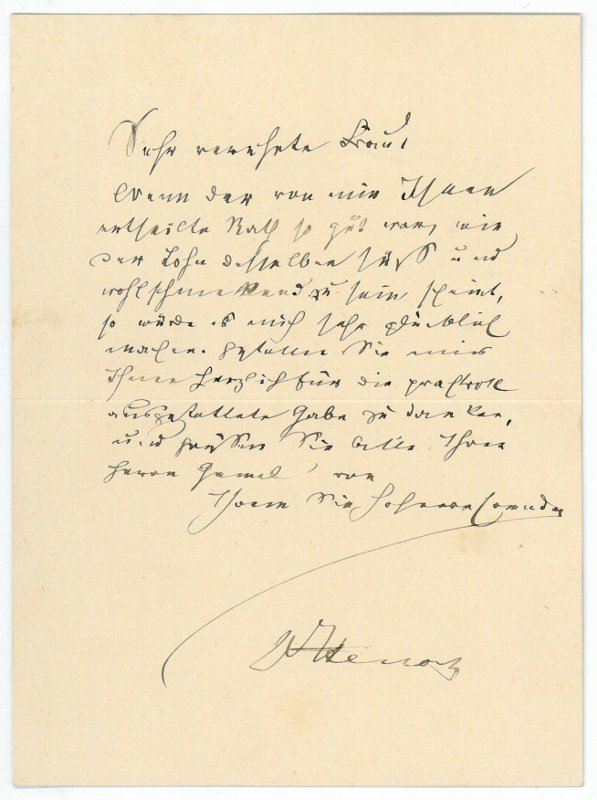 Sehr verehrte Frau!
Wenn der von mir Ihnen
ertheilte Rath so gut war, wie
der Lohn desselben süß und
wohlschmekend zu sein scheint,
so würde es mich sehr glücklich
machen. Gestatten Sie mir
Ihnen herzlich für die prachtvoll
ausgestattete Gabe zu danken,
und grüßen Sie bitte Ihren
Herrn Gemal, von
Ihrem Sie hochverehrenden